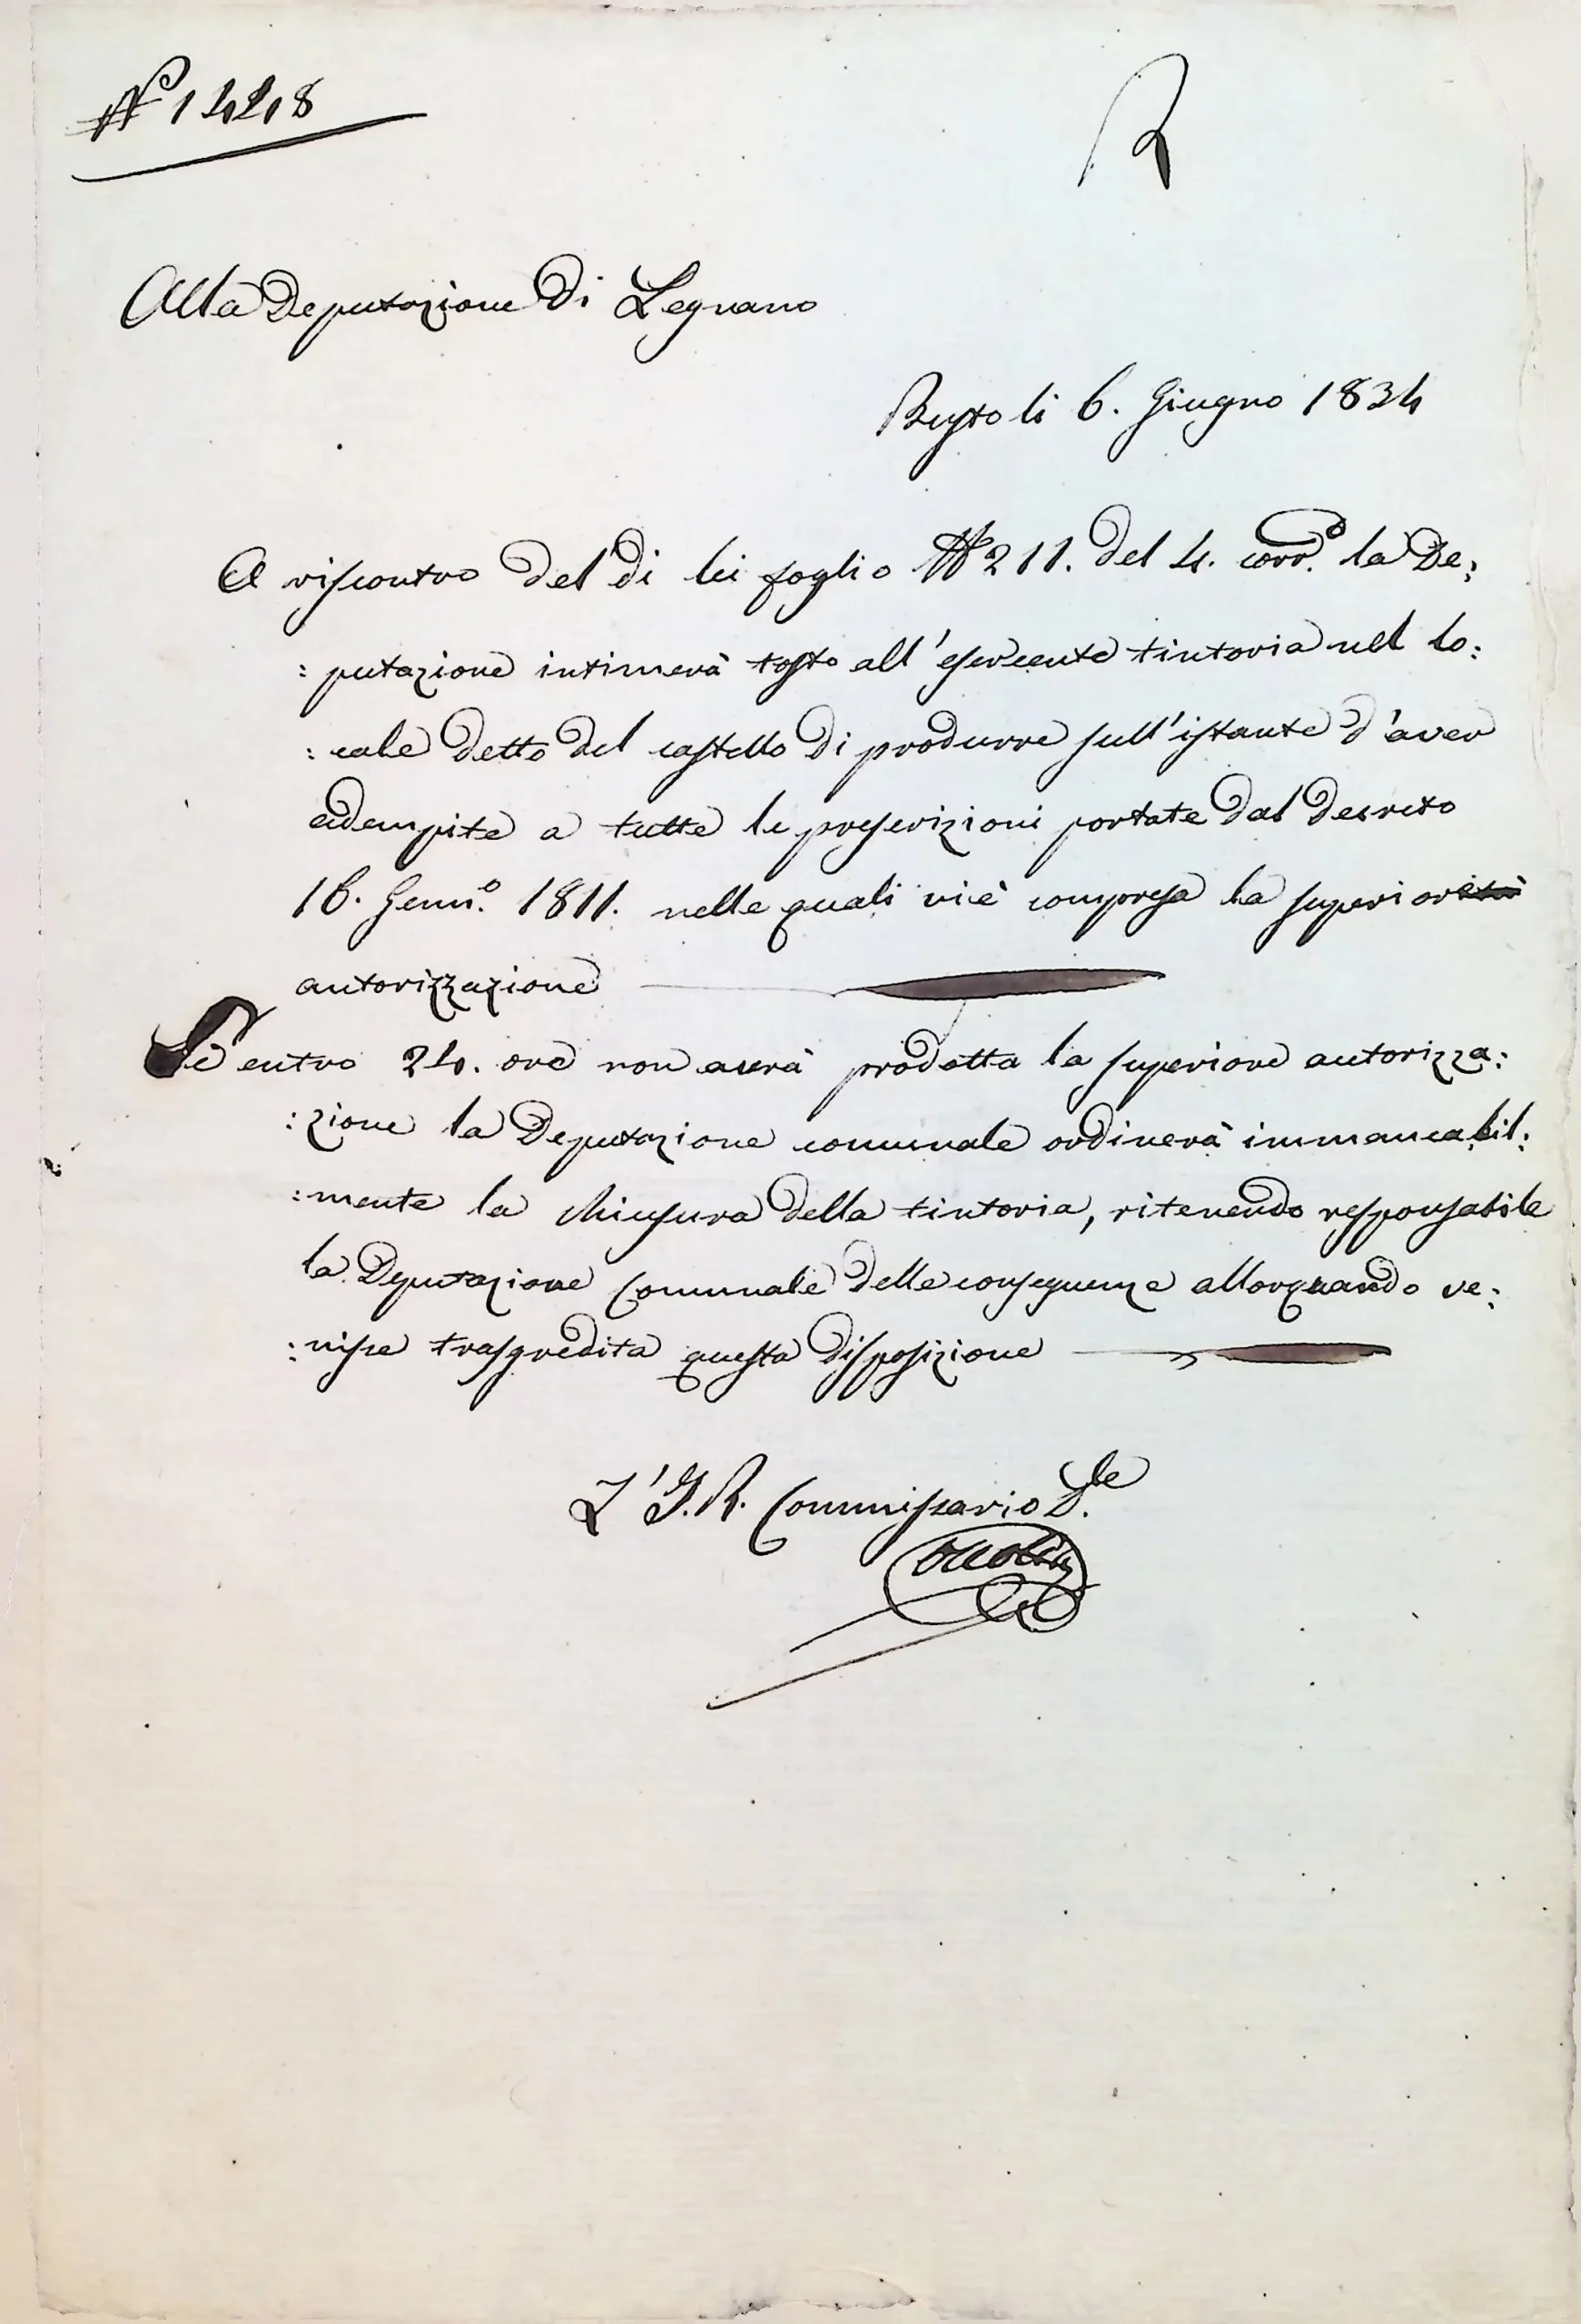 N° 1428
R
Alla Deputazione di Legnano
Busto li 6. Giugno 1834
A riscontro del di lei foglio N° 211. del 4. corr.° la De:
:putazione intimerà tosto all'esercente tintoria nel lo:
:cale detto del castello di produrre sull'istante d'aver
adempite a tutte le prescrizioni portate dal decreto
16. Genn.° 1811. nelle quali vi è compresa la superiore
autorizzazione
Se entro 24. ore non averà prodotta la superiore autorizza:
:zione la Deputazione comunale ordinerà immancabil:
:mente la chiusura della tintoria, ritenendo responsabile
la Deputazione Comunale delle conseguenze allorquando ve:
:nisse trasgredita questa disposizione
L'I. R. Commissario D.le